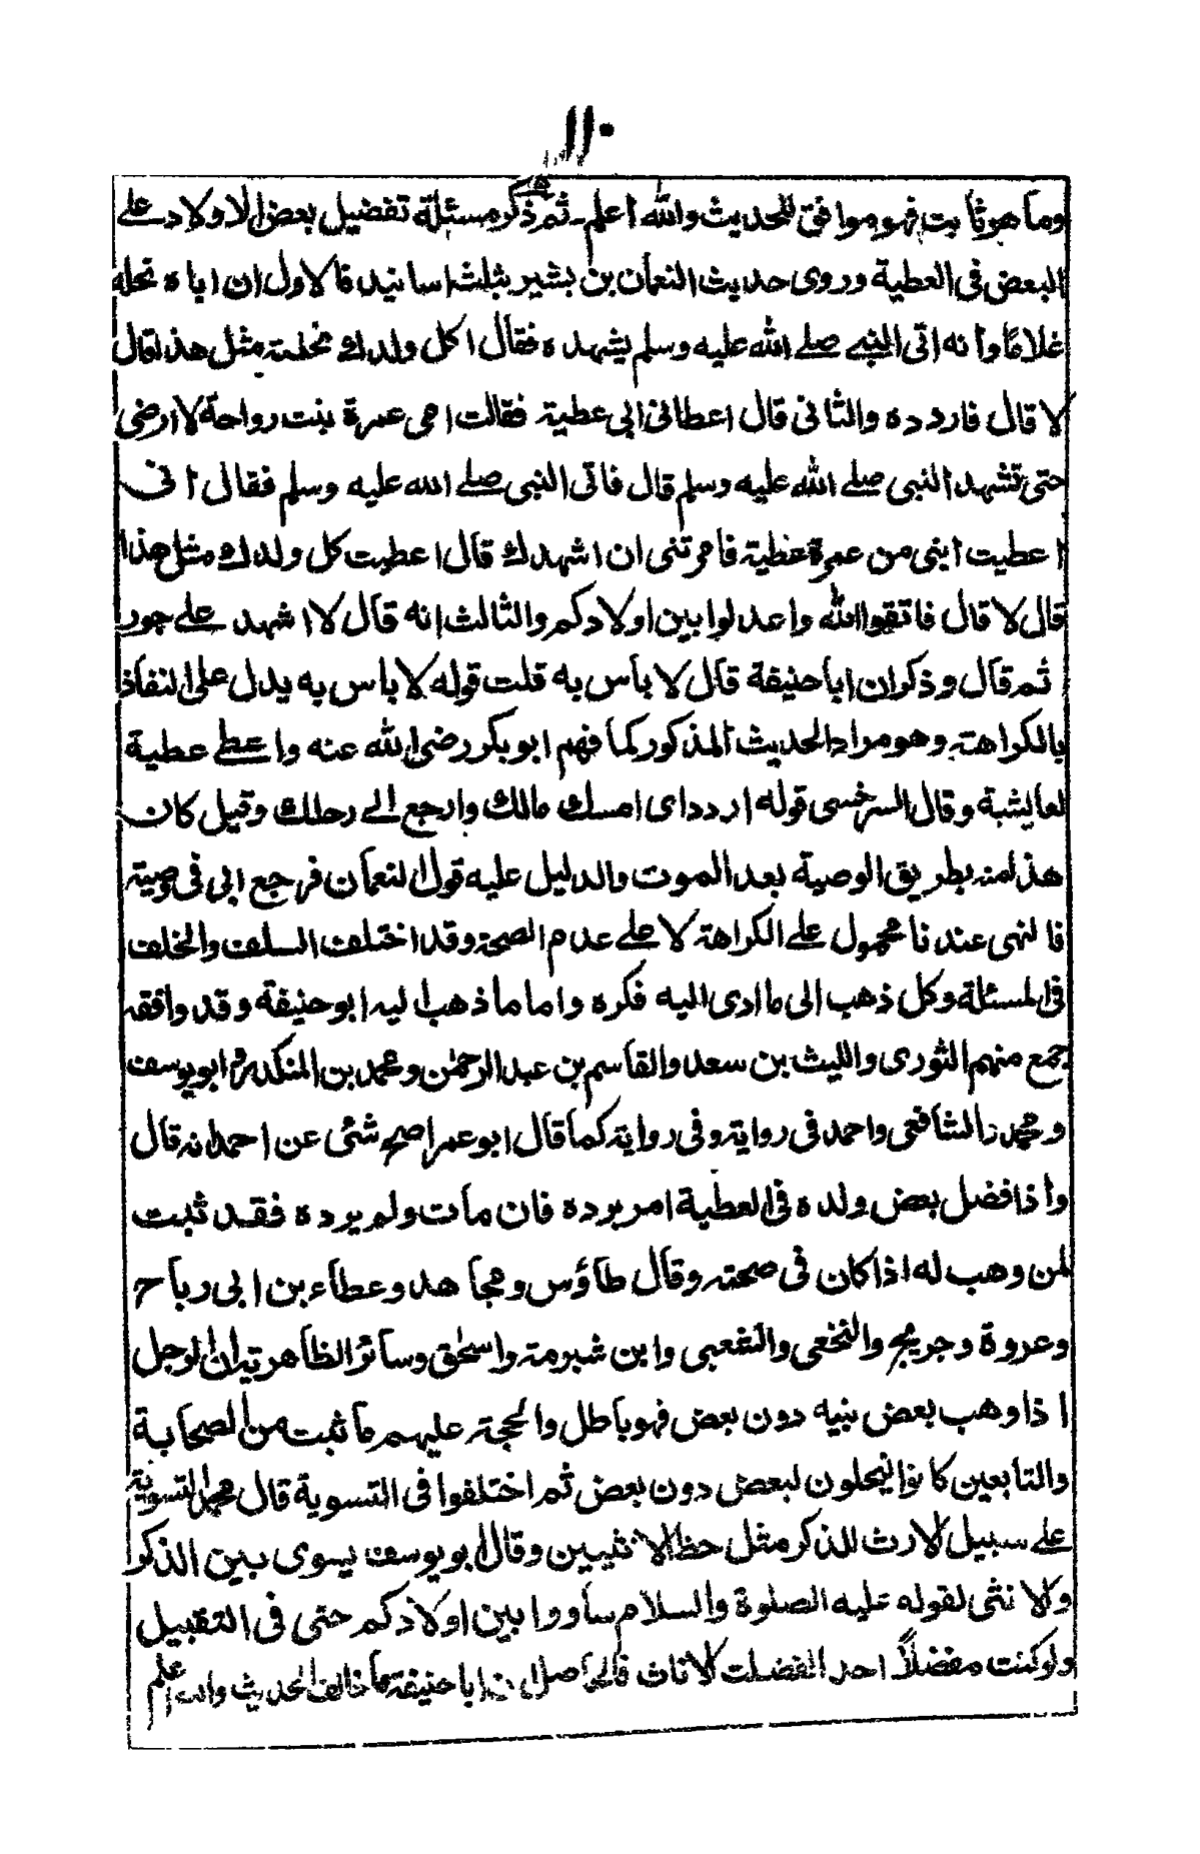 ١١٠
وما هو ثابت فهو موافق للحديث والله اعلم۔ ثم ذكر مسئلة تفضيل بعض الاولاد علے
البعض فى العطية وروى حديث النعمان بن بشير بثلث اسانيد فالاول ان اباه نحله
غلاما وانه اتى النبے صلے الله عليه وسلم يشهده فقال اكل ولدك نحلته مثل هذا قال
لا قال فاردده والثانى قال اعطانى ابى عطية فقالت امى عمرة بنت رواحة لا ارضى
حتى تشهد النبى صلے الله عليه وسلم قال فاتى النبى صلے الله عليه وسلم فقال انى
اعطيت ابنى من عمرة عطية فامرتنى ان اشهدك قال اعطيت كل ولدك مثل هذا
قال لا قال فاتقوا الله واعدلوا بين اولادكم والثالث انه قال لا اشهد علے جور
ثم قال وذكر ان ابا حنيفة قال لا بأس به قلت قوله لا باس به يدل على النفاذ
بالكراهة وهو مراد الحديث المذكور كما فهم ابو بكر رضى الله عنه واعطے عطية
لعايشة وقال السرخسى قوله اردد اى امسك مالك وارجع الے رحلك وقيل كان
هذا منه بطريق الوصية بعد الموت والدليل عليه قول النعمان فرجع ابى فى وصيته
فالنهى عندنا محمول علے الكراهة لا علے عدم الصحة وقد اختلف السلف والخلف
فى المسئلة وكل ذهب الى ما ادى اليه فكره واما ما ذهب اليه ابو حنيفة وقد وافقه
جمع منهم الثورى والليث بن سعد والقاسم بن عبد الرحمٰن ومحمد بن المنكدر وابو يوسف
ومحمد والشافعى واحمد فى رواية وفى رواية كما قال ابو عمر اصح شئى عن احمد انه قال
واذا فضل بعض ولده فى العطية امر برده فان مات ولم يرده فقد ثبت
لمن وهب له اذا كان فى صحته وقال طاؤس ومجاهد وعطاء بن ابى رباح
وعروة وجريج والنخعى والشعبى وابن شبرمة واسحٰق وسائر الظاهرية ان الرجل
اذا وهب بعض بنيه دون بعض فهو باطل والحجة عليهم ما ثبت من الصحابة
والتابعين كانوا ينحلون لبعض دون بعض ثم اختلفوا فى التسوية قال محمد التسوية
علے سبيل الارث للذكر مثل حظ الانثيين وقال ابو يوسف يسوى بين الذكر
والانثى لقوله عليه الصلوة والسلام ساووا بين اولادكم حتى فى التقبيل
ولو كنت مفضلاً احد الفضلت الاناث فالحاصل ان ابا حنيفة ما خالف الحديث والله اعلم